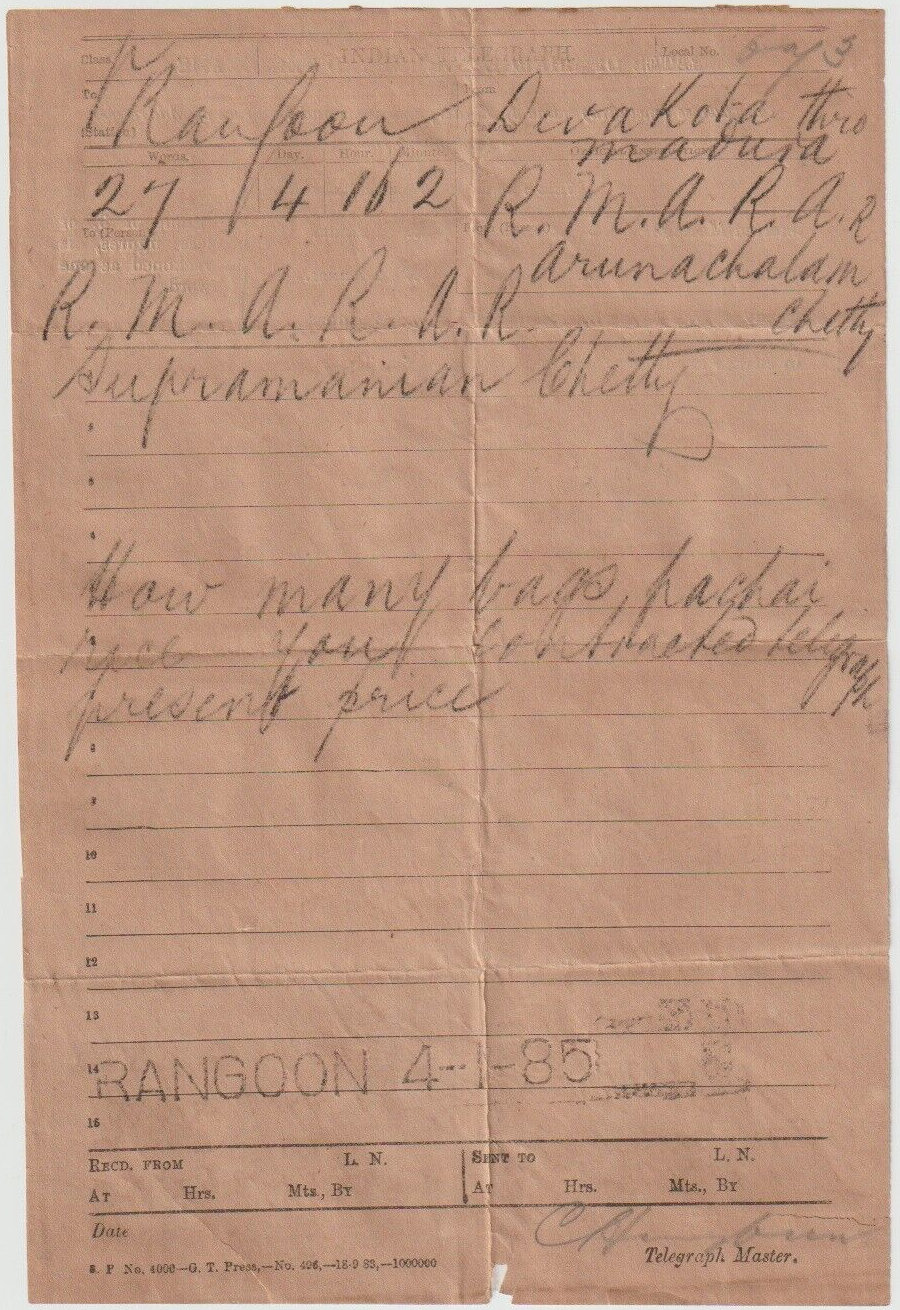 Class INDIAN TELEGRAPH Local No.
To
Rangoon Devakota thro
(Station) madura
Words. Day. Hour.
27 4 16 2 R. M. A. R. A. R
To (Person) Arunachalam
R. M. A. R. A. R. Chetty
Supramanian Chetty
5
4
How many bags pachai
rice you contracted telegraph
present price
8
9
10
11
12
13
14 RANGOON 4-- -85
15
RECD. FROM L. N. SENT TO L. N.
AT Hrs. Mts., BY AT Hrs. Mts., BY
Date
S. F No. 4000—G. T. Press,—No. 496,—18-9 83,—1000000 Telegraph Master.